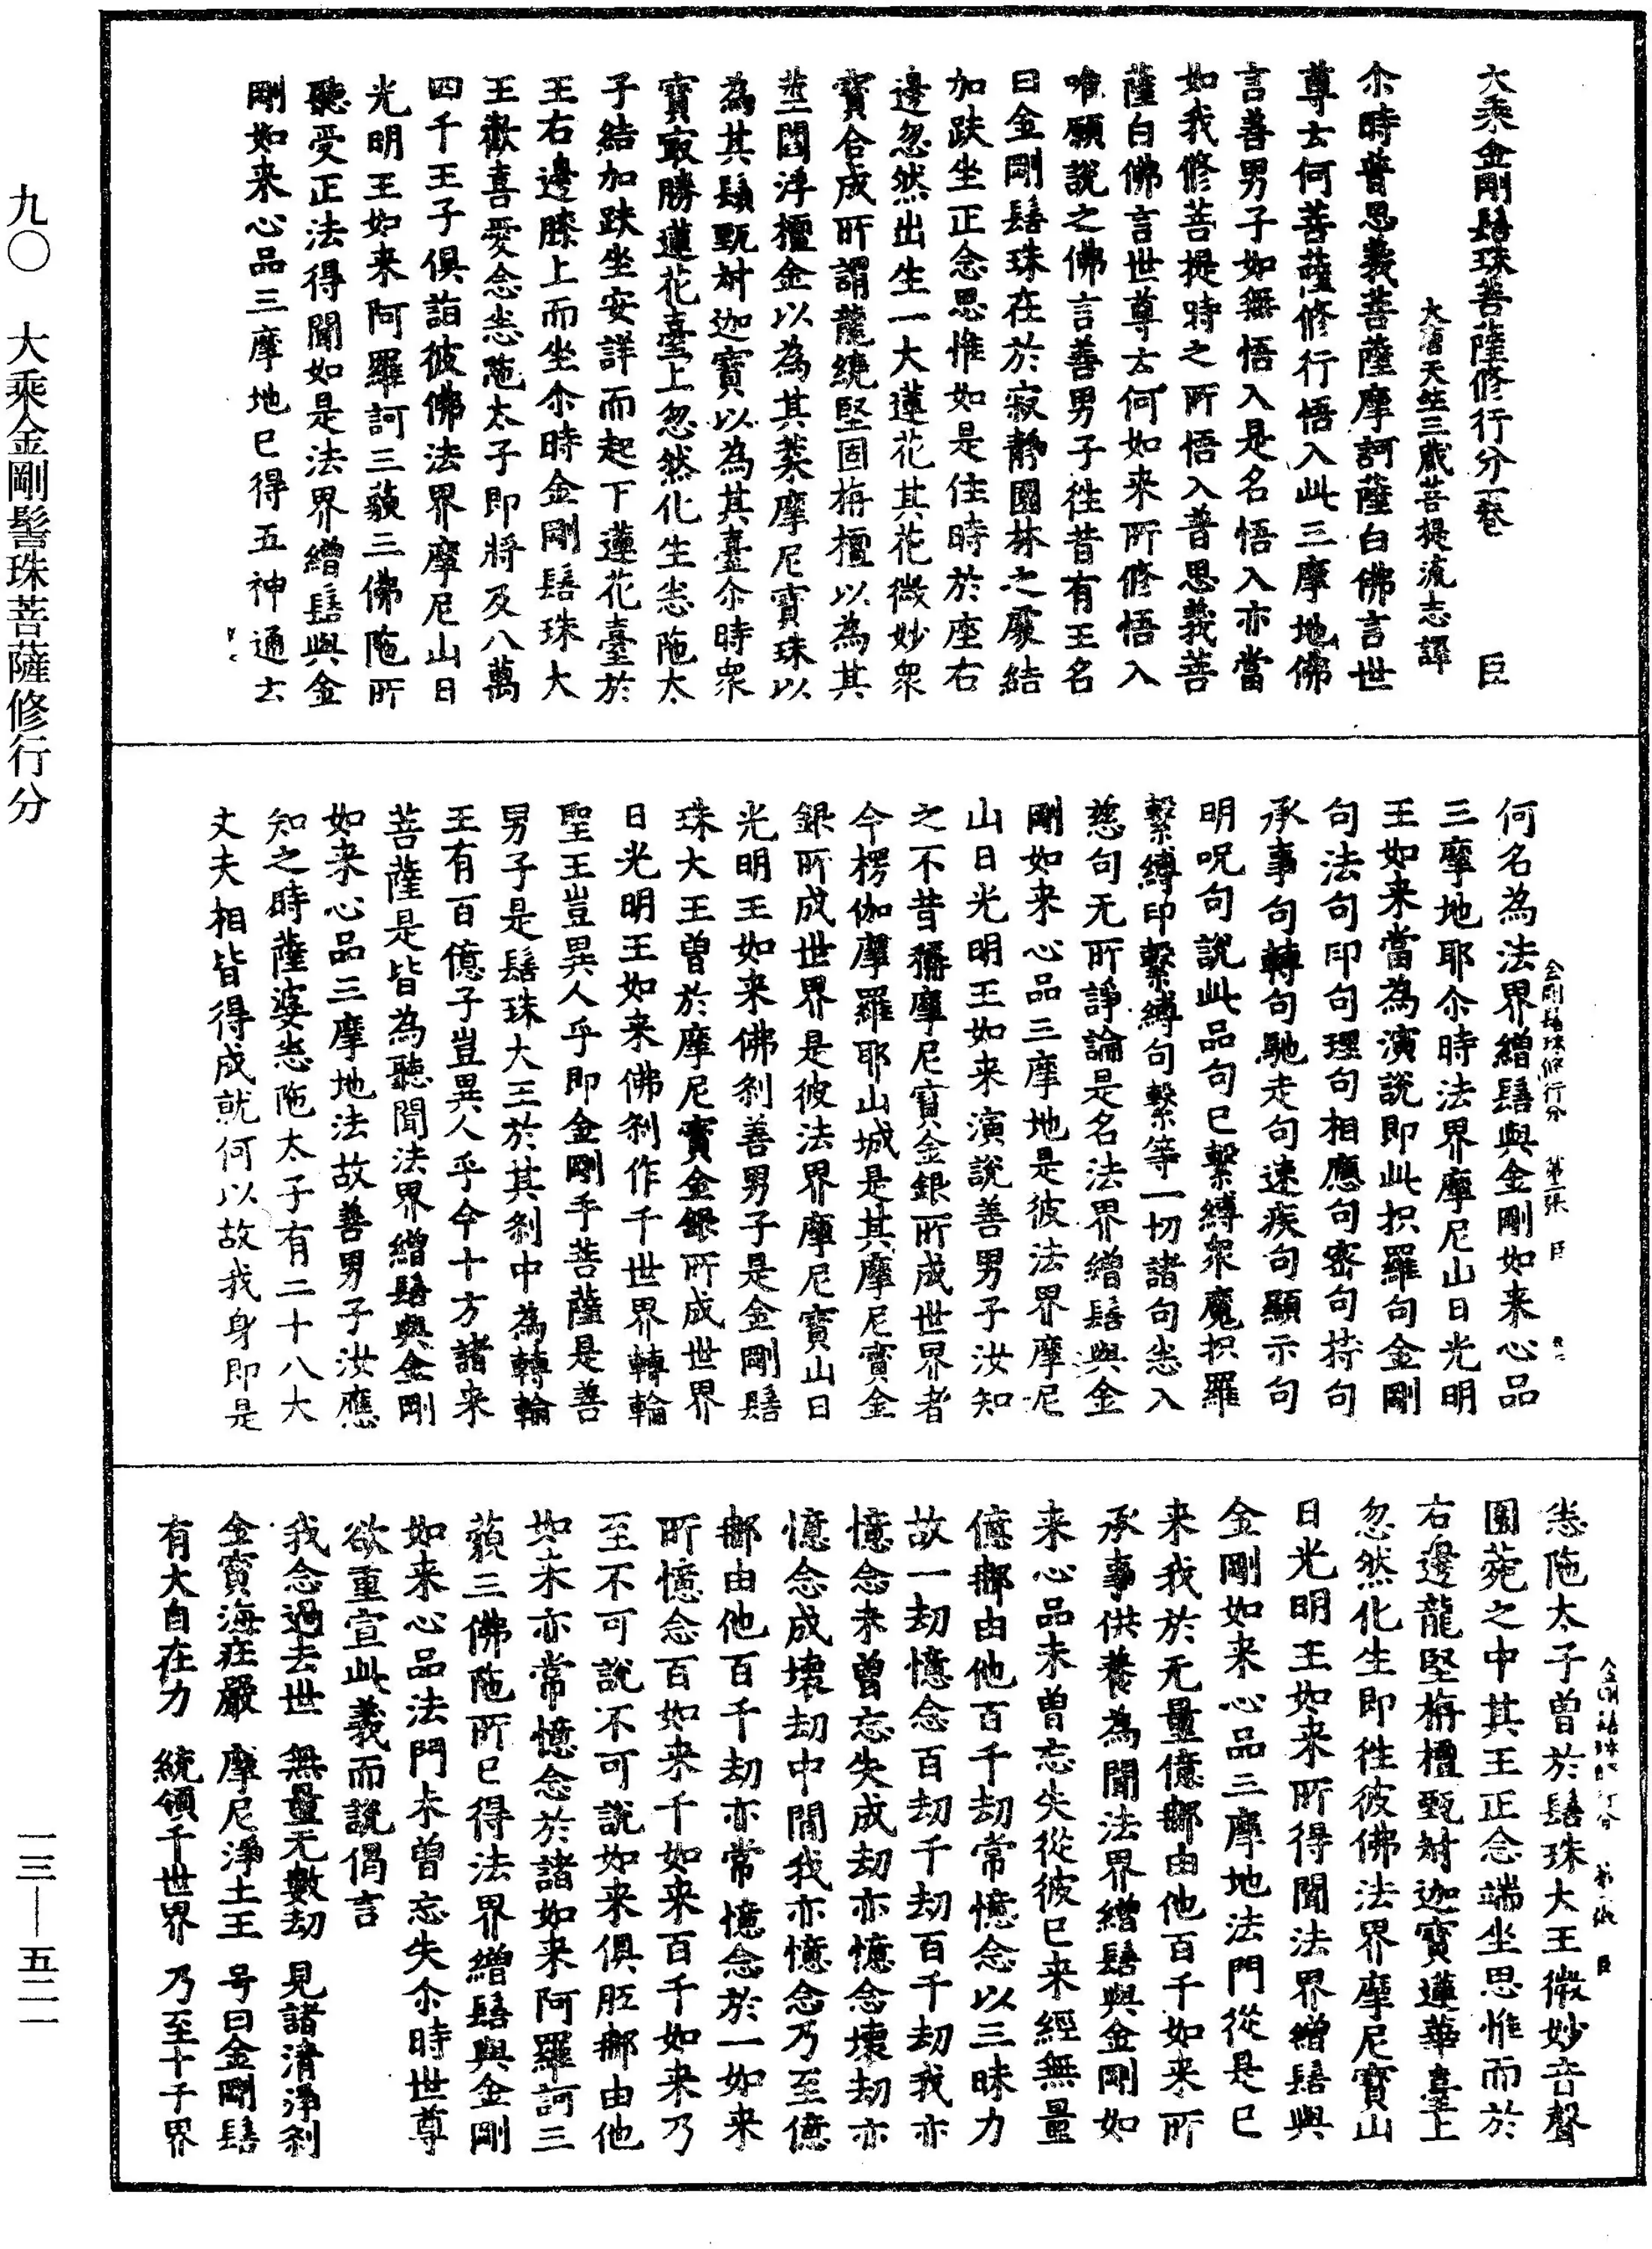 大乘金剛髻珠菩薩修行分一卷 臣
大唐天竺三藏菩提流志譯
尒時普思義菩薩摩訶薩白佛言世
尊云何菩薩修行悟入此三摩地佛
言善男子如無悟入是名悟入亦當
如我修菩提時之所悟入普思義菩
薩白佛言世尊云何如来所修悟入
唯願說之佛言善男子往昔有王名
曰金剛髻珠在於寂靜園林之處結
加趺坐正念思惟如是住時於座右
邊忽然出生一大蓮花其花微妙衆
寶合成所謂龍繞堅固栴檀以為其
莖閻浮檀金以為其葉摩尼寶珠以
為其鬚甄叔迦寶以為其臺尒時衆
寶㝡勝蓮花臺上忽然化生悉陁太
子結加趺坐安詳而起下蓮花臺於
王右邊膝上而坐尒時金剛髻珠大
王歡喜愛念悉陁太子即將及八萬
四千王子俱詣彼佛法界摩尼山日
光明王如来阿羅訶三藐三佛陁所
聽受正法得聞如是法界繒髻與金
剛如来心品三摩地已得五神通云
何名為法界繒髻與金剛如来心品
三摩地耶尒時法界摩尼山日光明
王如来當為演說即此抧羅句金剛
句法句印句理句相應句密句持句
承事句轉句馳走句速疾句顯示句
明呪句說此品句已繫縛衆魔抧羅
繫縛印繫縛句繫等一切諸句悉入
慈句无所諍論是名法界繒髻與金
剛如来心品三摩地是彼法界摩尼
山日光明王如来演說善男子汝知
之不昔稱摩尼寶金銀所成世界者
今楞伽摩羅耶山城是其摩尼寶金
銀所成世界是彼法界摩尼寶山日
光明王如来佛刹善男子是金剛髻
珠大王曽於摩尼寶金銀所成世界
日光明王如来佛刹作千世界轉輪
聖王豈異人乎即金剛手菩薩是善
男子是髻珠大王於其刹中為轉輪
王有百億子豈異人乎今十方諸来
菩薩是皆為聽聞法界繒髻與金剛
如来心品三摩地法故善男子汝應
知之時薩婆悉陁太子有二十八大
丈夫相皆得成就何以故我身即是
悉陁太子曽於髻珠大王微妙音聲
園苑之中其王正念端坐思惟而於
右邊龍堅栴檀甄叔迦寶蓮華臺上
忽然化生即往彼佛法界摩尼寶山
日光明王如来所得聞法界繒髻與
金剛如来心品三摩地法門從是已
来我於无量億㮈由他百千如来所
承事供養為聞法界繒髻與金剛如
来心品未曽忘失從彼已来經無量
億㮈由他百千劫常憶念以三昧力
故一劫憶念百劫千劫百千劫我亦
憶念未曽忘失成劫亦憶念壞劫亦
憶念成壞劫中間我亦憶念乃至億
㮈由他百千劫亦常憶念於一如来
所憶念百如来千如来百千如来乃
至不可說不可說如来俱胝㮈由他
如来亦常憶念於諸如来阿羅訶三
藐三佛陁所已得法界繒髻與金剛
如来心品法門未曽忘失尒時世尊
欲重宣此義而說偈言
我念過去世 無量无數劫 見諸清淨刹
金寶海莊嚴 摩尼淨土王 号曰金剛髻
有大自在力 統領千世界 乃至十千界
金剛髻珠修行分 第二張 臣
九〇 大乘金剛髻珠菩薩修行分
一三—五二一